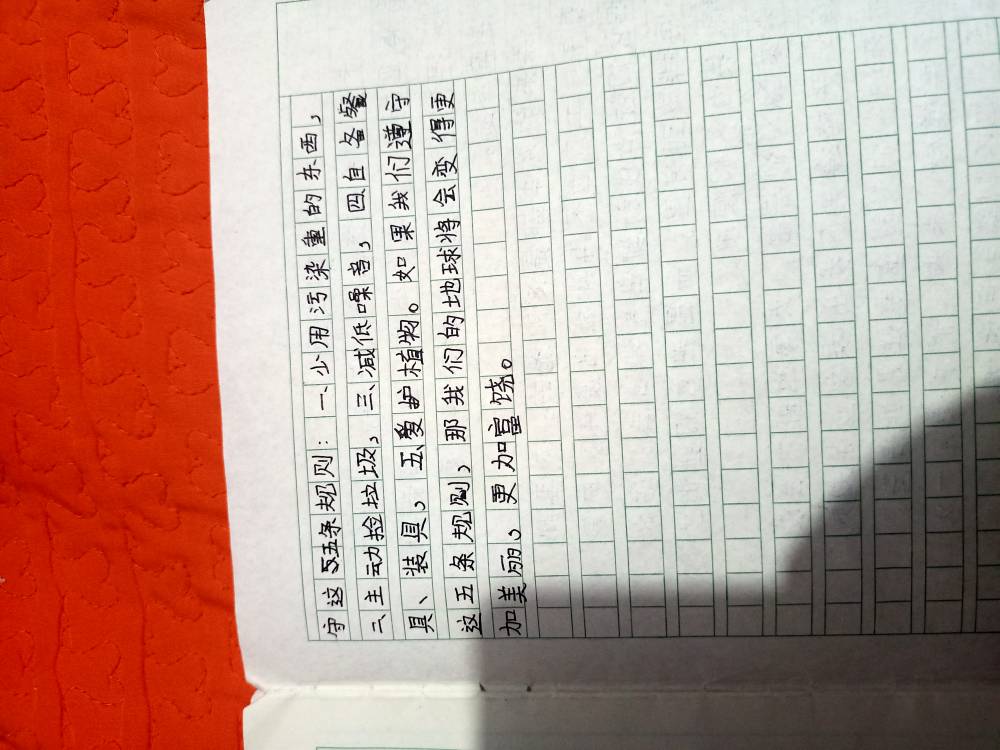 守这5五条规则：一、少用污染重的东西，
二、主动捡垃圾，三、减低噪音，四自备餐
具、装具，五、爱护植物。如果我们遵守
这五条规则，那我们的地球将会变得更
加美丽、更加富饶。